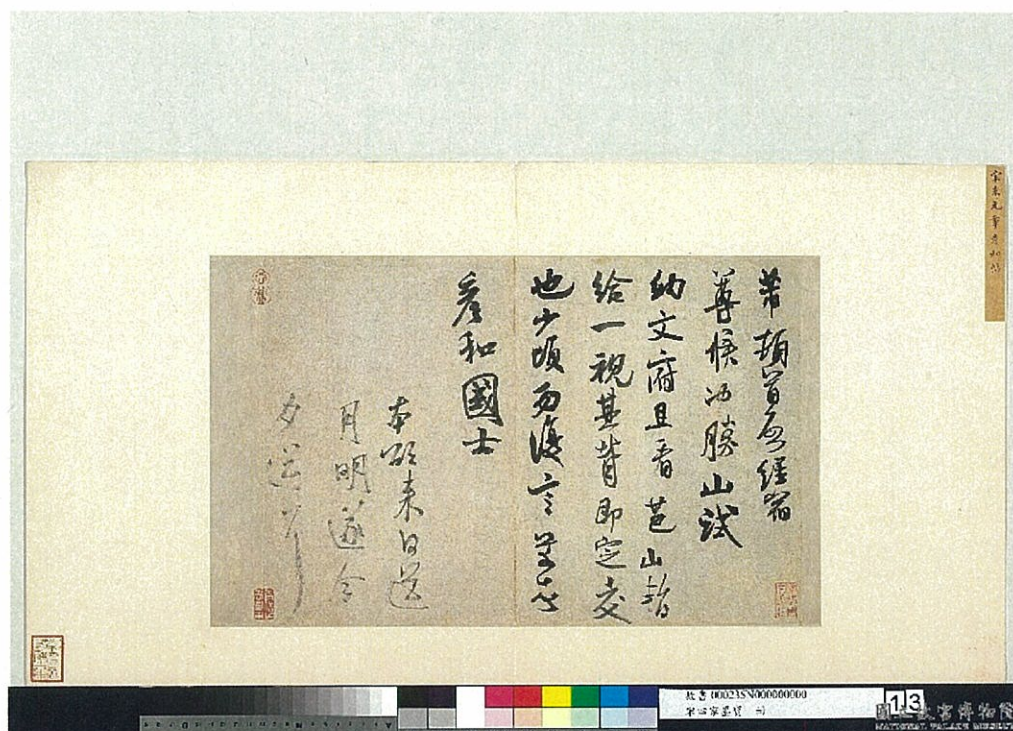 宋米元章彥和帖
芾頓首再啟經宿
尊候冲勝山試
納文府且看芭山暫
給一視其背即定交
也少頃勿復言芾頓首
彥和國士
本欲來日送
月明遂今
夕送耳
故書000235N000000000
宋四家墨寶 冊
13
國立故宮博物院
NATIONAL PALACE MUSEUM